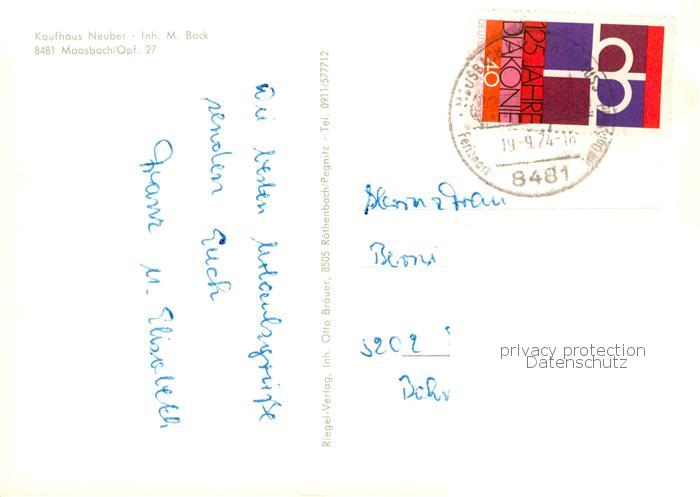 Kaufhaus Neuber · Inh. M. Bock
8481 Moosbach/Opf. 27
Die besten Urlaubsgrüße
senden Euch
Franz u. Elisabeth
Riegel-Verlag, Inh. Otto Bräuer, 8505 Röthenbach/Pegnitz · Tel. 0911/577712
125 JAHRE
DIAKONIE
40
19-9.74-18
8481
Herrn & Frau
5202
privacy protection
Datenschutz